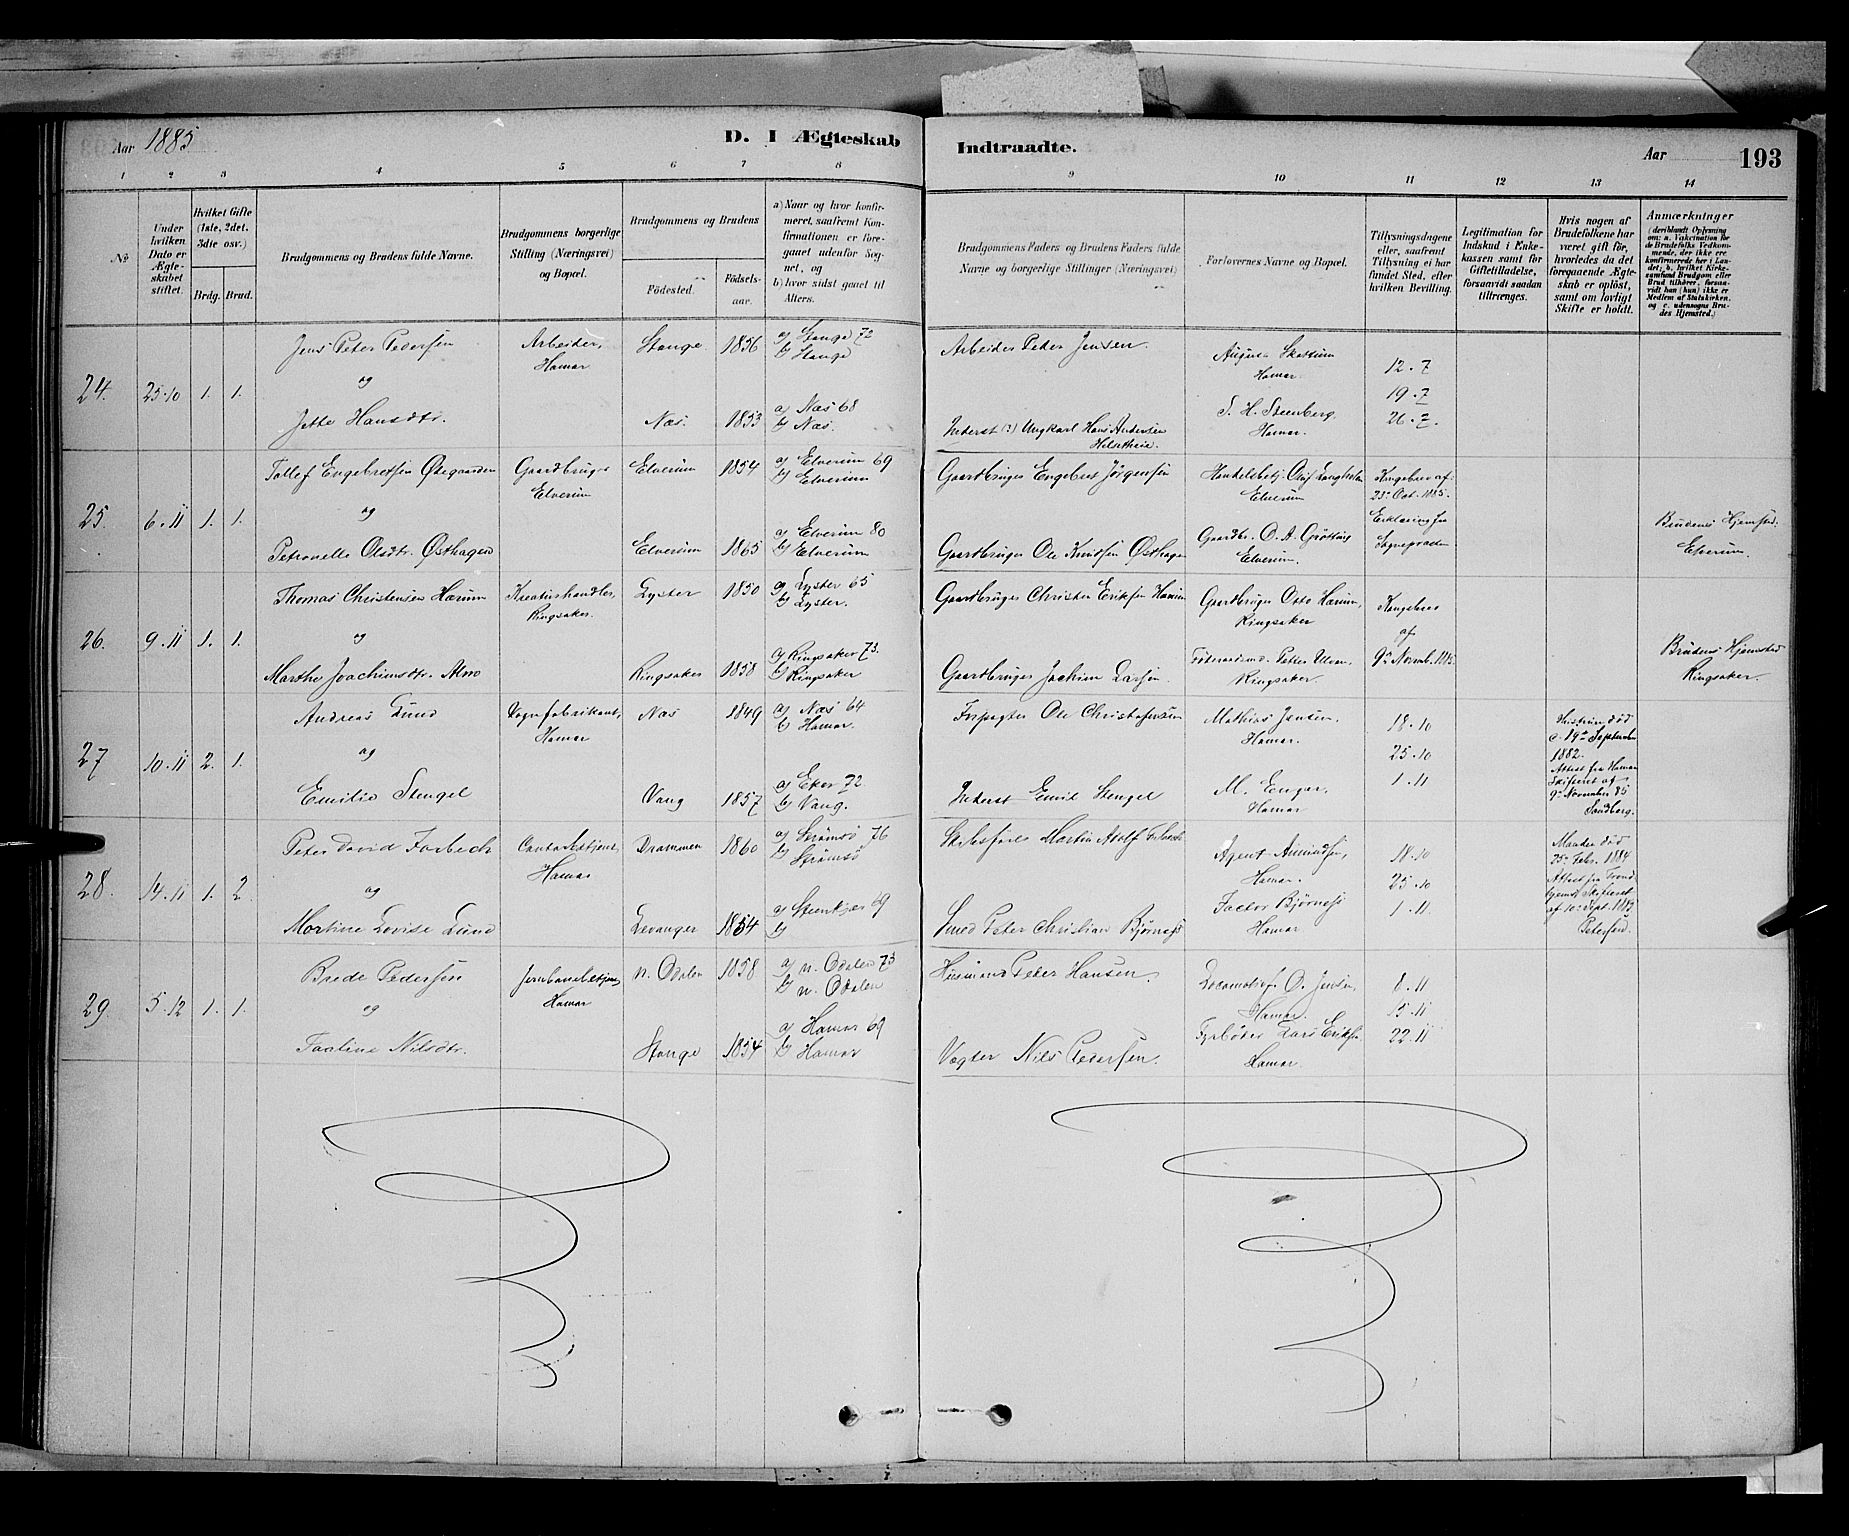 Aar 1885
D. I Ægteskab
Indtraadte.
Aar
193
1 2 3 4 5 6 7 8 9 10 11 12 13 14
No
Under hvilken Dato er Ægteskabet stiftet.
Hvilket Gifte (1ste, 2det, 3die osv.)
Brdg. Brud.
Brudgommens og Brudens fulde Navne.
Brudgommens borgerlige Stilling (Næringsvei) og Bopæl.
Brudgommens og Brudens
Födested.
Födselsaar.
a) Naar og hvor konfirmeret, saafremt Konfirmationen er foregaaet udenfor Sognet, og
b) hvor sidst gaaet til Alters.
Brudgommens Faders og Brudens Faders fulde Navne og borgerlige Stillinger (Næringsvei)
Forlovernes Navne og Bopæl.
Tillysningsdagene eller, saafremt Tillysning ei har fundet Sted, efter hvilken Bevilling.
Legitimation for Indskud i Enkekassen samt for Giftetilladelse, forsaavidt saadan tiltrænges.
Hvis nogen af Brudefolkene har været gift för, hvorledes da det foregaaende Ægteskab er oplöst, samt om lovligt Skifte er holdt.
Anmærkninger (deriblandt Oplysning om: a. Vakcination for de Brudefolks Vedkommende, der ikke ere konfirmerede her i Landet; b. hvilket Kirkesamfund Brudgom eller Brud tilhörer, forsaavidt han (hun) ikke er Medlem af Statskirken, og c. udensogns Brudes Hjemsted.)
24. 25.10 1. 1.
Jens Peter Pedersen
og
Jette Hansdtr.
Arbeider,
Hamar
Stange 1856 a) Stange 72
b) Stange
Næs. 1853 a) Næs 68
b) Næs.
Arbeider Peder Jensen.
Inderst (?) Ungkarl Hans Andersen
August Skattum
Hamar.
S. H. Steenberg,
Hamar.
12.7
19.7
26.7.
25. 6.11 1. 1.
Tollef Engebretsen Østgaarden
og
Petronelle Olsdtr. Østhagen
Gaardbruger
Elverum
Elverum 1854 a) Elverum 69
b) Elverum
Elverum 1865 a) Elverum 80
b) Elverum
Gaardbruger Engebret Jörgensen
Gaardbruger Ole Knudsen Østhagen
Handelsbetj. Olaf
Elverum
Gaardbr. O. A. Grötting
Elverum.
Kongebrev af
23. Oct. 1885.
Erklæring fra
Sognepræsten
Brudens Hjemsted.
Elverum.
26. 9.11 1. 1.
Thomas Christensen Hærum
og
Marthe Joachimsdtr. Almo
Kreaturhandler,
Ringsaker.
Lyster 1850 a) Lyster 65
b) Lyster.
Ringsaker 1858 a) Ringsaker 73.
b) Ringsaker
Gaardbruger Christen Eriksen Hærum
Gaardbruger Joachim Larsen.
Gaardbruger Otto Hærum,
Ringsaker
Petter Ulven
Ringsaker.
Kongebrev
af
9. Novemb. 1885.
Brudens Hjemsted
Ringsaker.
27 10.11 2. 1.
Andreas Lund
og
Emilie Stengel
Vognfabrikant,
Hamar
Næs 1849 a) Næs 64
b) Hamar.
Vang 1857 a) Eker 72
b) Vang.
Forpagter Ole Christophersen
Inderst Emil Stengel
Mathias Jensen,
Hamar.
M. Enger,
Hamar
18.10
25.10
1.11
Hustruen död
d. 19de September
1882.
Attest fra Hamar
Skifteret af
9. November 85
Sandberg.
28. 14.11 1. 2.
Peter David Forbech
og
Martine Lovise Lund
Contorbetjent,
Hamar
Drammen 1860 a) Strömsö 76
b) Strömsö
Levanger 1854 a) Steenkjer 69
b)
Skibsförer Martin Adolf Forbech
Smed Peter Christian Björnes
Agent Amundsen,
Hamar.
Factor Björnes
Hamar
18.10
25.10
1.11
Manden död
25. Febr. 1884
Attest fra Trondhjems Skifteret
af 10. Sept. 1885
Petersen.
29. 5.12 1. 1.
Brede Pedersen
og
Paaline Nilsdtr.
Jernbanebetjent
Hamar
N. Odalen 1858 a) N. Odalen 73
b) N. Odalen
Stange 1854 a) Hamar 69
b) Hamar
Husmand Peder Hansen
Vægter Nils Pedersen.
Locomotivf. O. Jensen,
Hamar.
Fyrböder Lars Eriksen
Hamar.
8.11
15.11
22.11